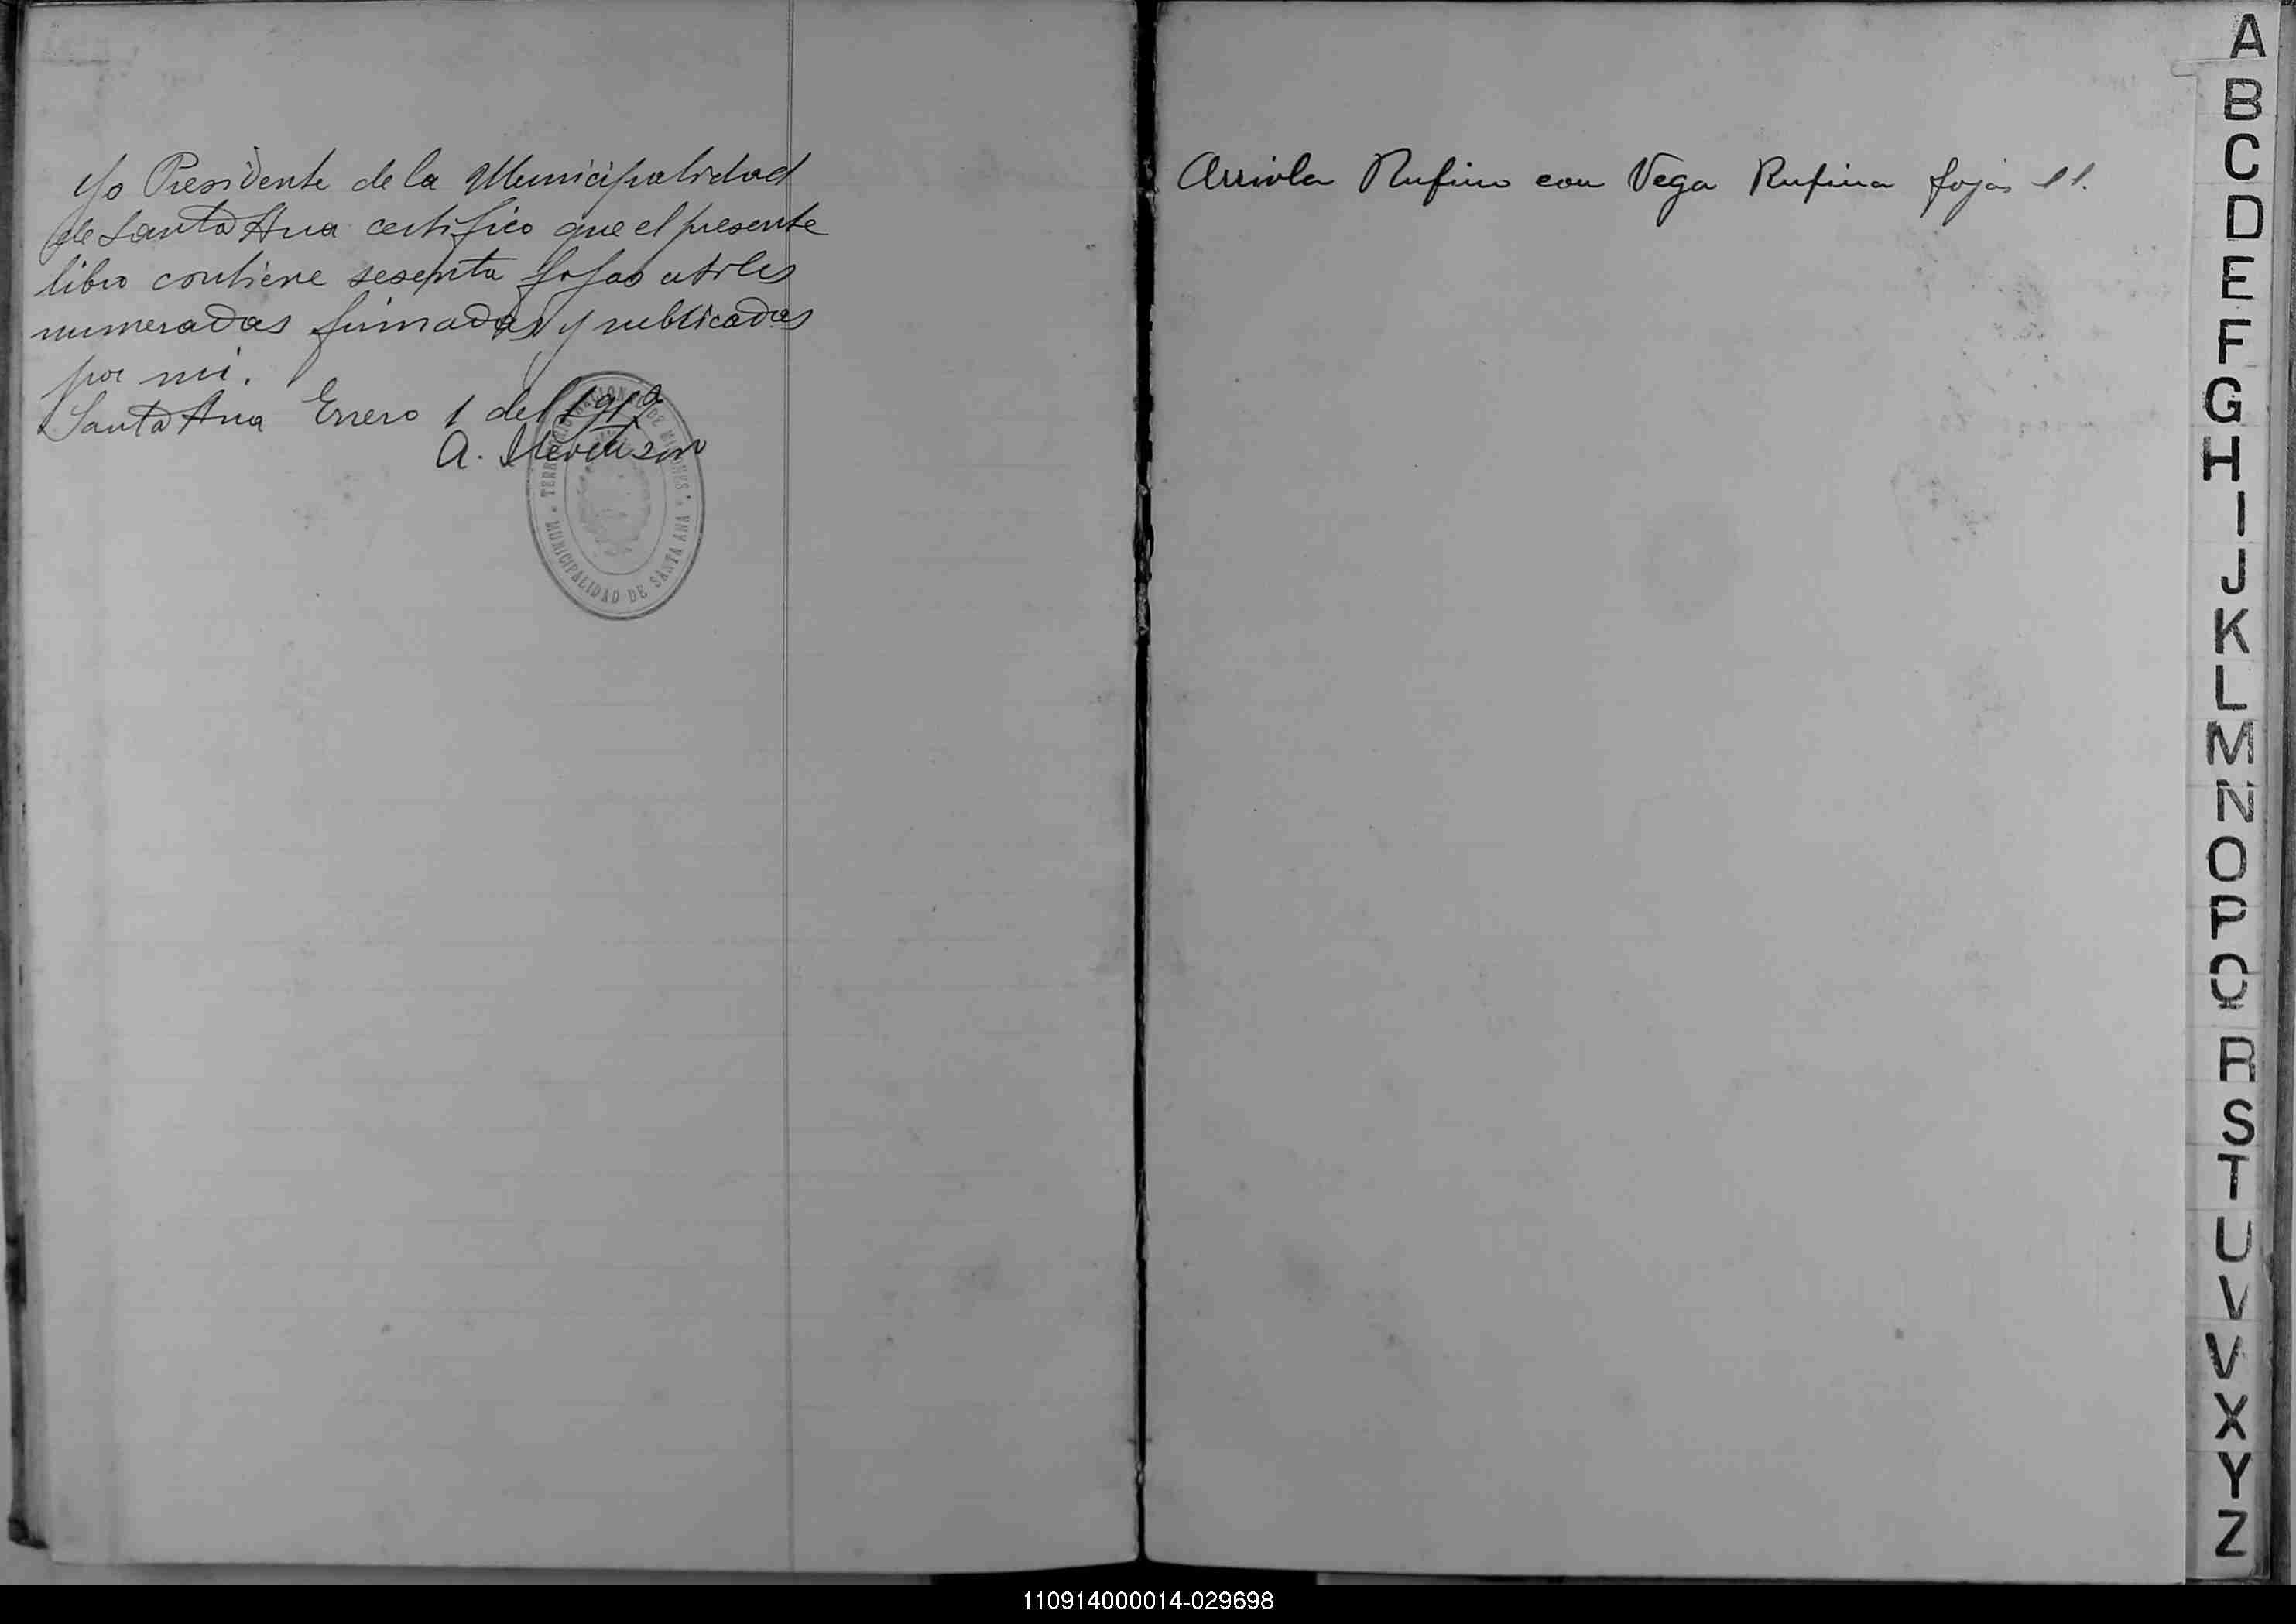 Yo Presidente de la Municipalidad
de Santa Ana certifico que el presente
libro contiene sesenta fojas utiles
numeradas firmadas y rubricadas
por mi.
Santa Ana Enero 1 del 1912
A.
TERRITORIO NACIONAL DE MISIONES
MUNICIPALIDAD DE SANTA ANA
Arriola Rufino con Vega Rufina fojas 11.
A
B
C
D
E
F
G
H
I
J
K
L
M
N
O
P
Q
R
S
T
U
V
V
X
Y
Z
110914000014-029698